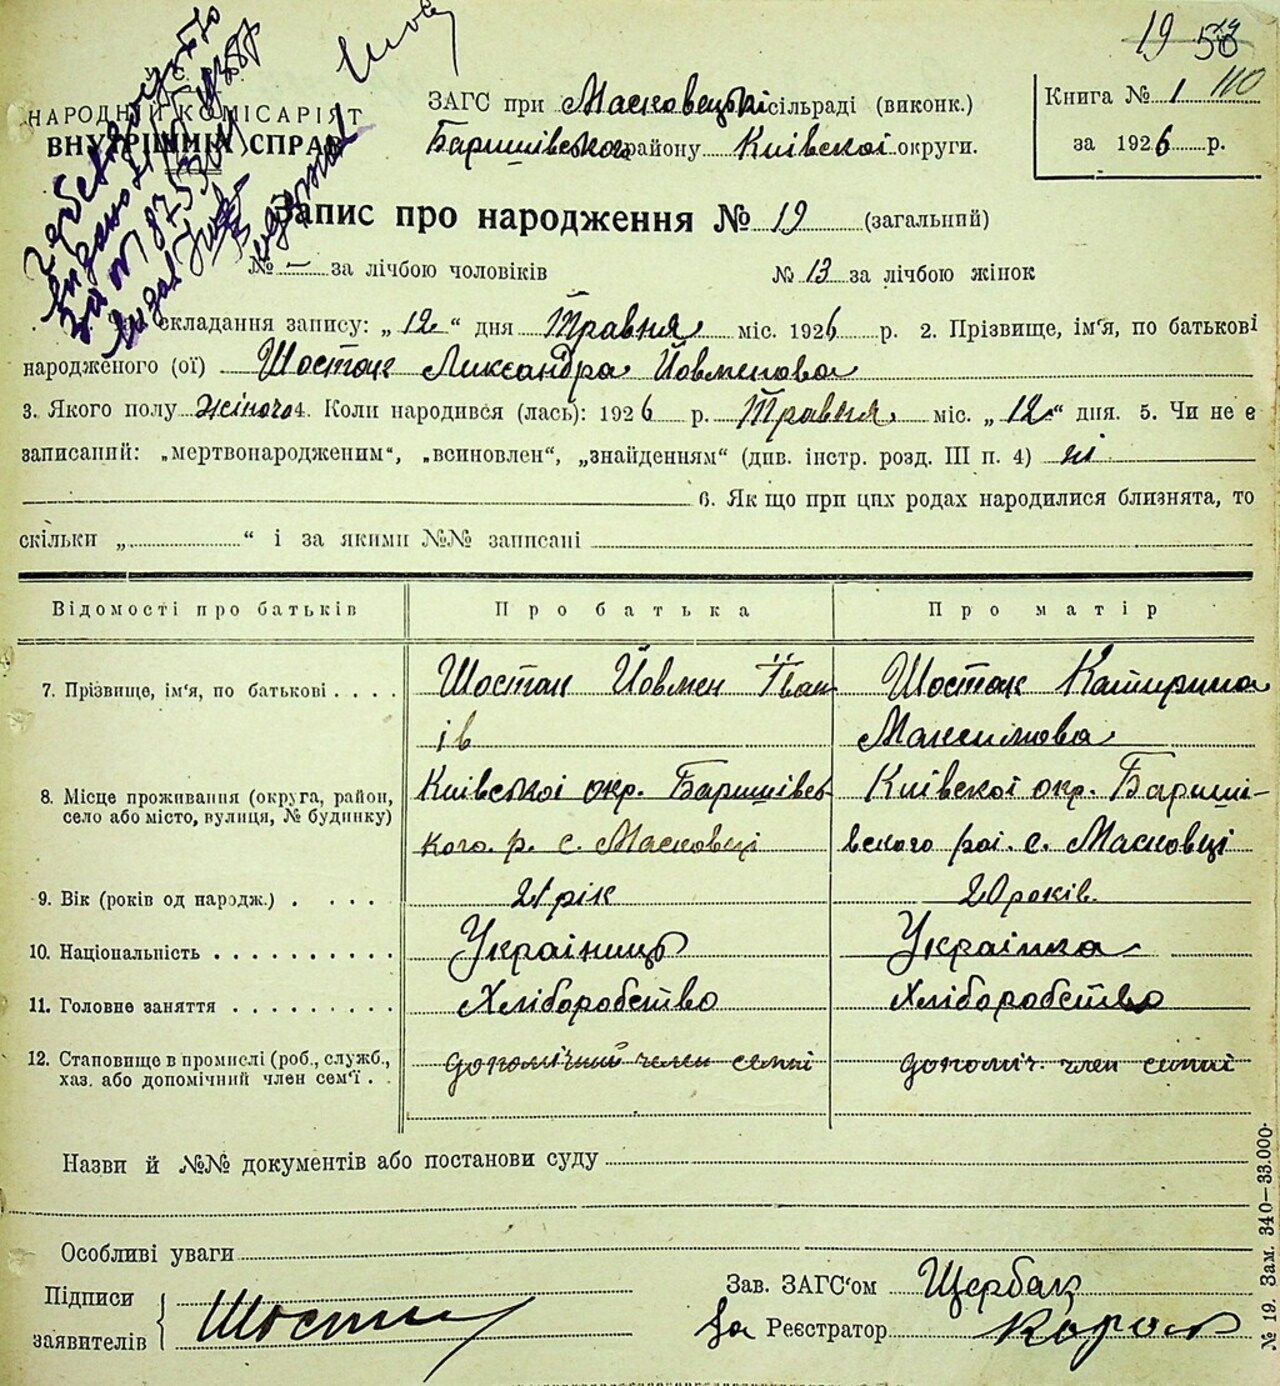 19 58
У С Р Р
НАРОДНІЙ КОМІСАРІЯТ
ВНУТРІШНІХ СПРАВ
ЗАГС при Масковецькі сільраді (виконк.)
Баришівсько району Київскоі округи.
Книга № 1 110
за 1926 р.
Запис про народження № 19 (загальний)
№ — за лічбою чоловіків № 13 за лічбою жінок
складання запису: „12“ дня Травня міс. 1926 р. 2. Прізвище, ім'я, по батькові
народженого (ої) Шостак Александра Йовменова
3. Якого полу жіночо 4. Коли народився (лась): 1926 р. Травня міс. „12“ дня. 5. Чи не є
записаний: „мертвонародженим“, „всиновлен“, „знайденням“ (див. інстр. розд. III п. 4) ні
6. Як що при цих родах народилися близнята, то
скільки „ “ і за якими №№ записані
Відомості про батьків Про батька Про матір
7. Прізвище, ім'я, по батькові . . . . Шостак Йовмен Іван Шостак Катирина
ів Максимова
8. Місце проживання (округа, район, Київськоі окр. Баришівсь Київскоі окр. Бариші-
село або місто, вулиця, № будинку) кого. р. с. Масковці вского рай. с. Масковці
9. Вік (років од народж.) . . . . 21 рік 20 років.
10. Національність . . . . . . . . . . Украіниць Украінка
11. Головне заняття . . . . . . . . . Хліборобство Хліборобство
12. Становище в промислі (роб., служб., допомічний член семіі допоміч. член семіі
хаз. або допомічний член сем'ї . .
Назви й №№ документів або постанови суду
Особливі уваги
Підписи Зав. ЗАГС'ом Щербак
заявителів Шостак За Реєстратор
№ 19. Зам. 340—33.000.